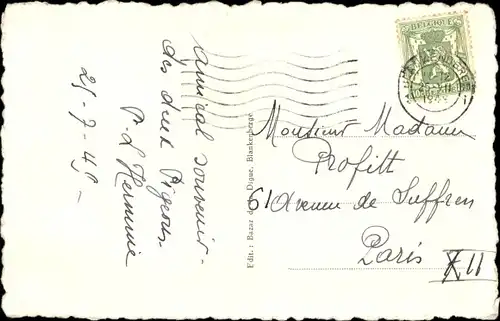 amical souvenir -
des deux Pigeons.
P. L Hermine
25-7-45 -
Edit.: Bazar de la Digue, Blankenberge
BELGIQUE
Monsieur Madame
Profitt
61 Avenue de Suffren
Paris XII